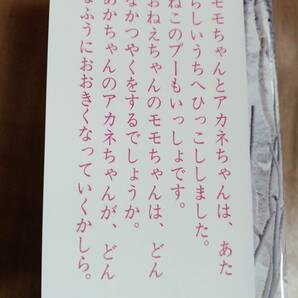 モモちゃんとアカネちゃんは、あた
らしいうちへひっこししました。
ねこのプーもいっしょです。
おねえちゃんのモモちゃんは、どん
なかつやくをするでしょうか。
あかちゃんのアカネちゃんが、どん
なふうにおおきくなっていくかしら。